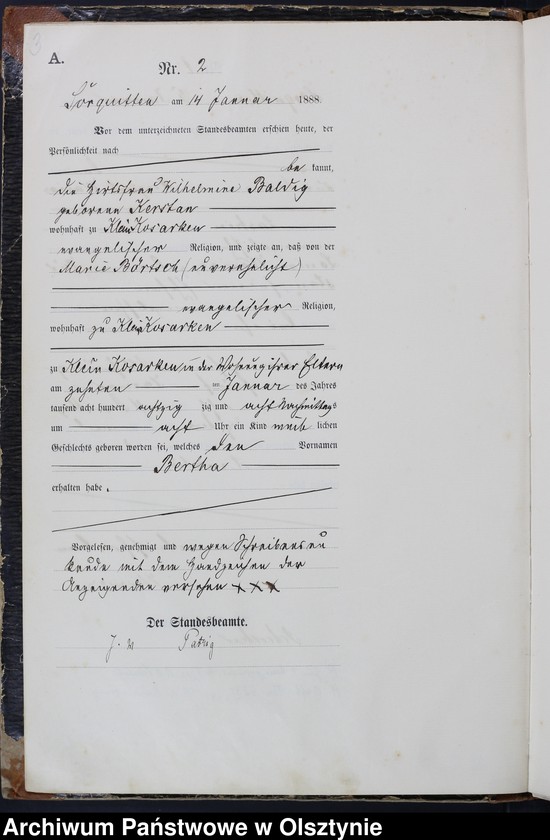 A.
Nr. 2
Sorquitten am 14 Januar 1888.
Vor dem unterzeichneten Standesbeamten erschien heute, der
Persönlichkeit nach
be kannt,
die Wirtsfrau Wilhelmine Baldig
geborene Kerstan
wohnhaft zu Klein Kosarken
evangelischer Religion, und zeigte an, daß von der
Marie Börtsch (unverehelicht)
evangelischer Religion,
wohnhaft zu Klein Kosarken
zu Klein Kosarken in der Wohnung ihrer Eltern
am zehnten ten Januar des Jahres
tausend acht hundert achtzig zig und acht Nachmittags
um acht Uhr ein Kind weib lichen
Geschlechts geboren worden sei, welches den Vornamen
Bertha
erhalten habe.
Vorgelesen, genehmigt und wegen Schreibensun
kunde mit dem Handzeichen der
Anzeigenden versehen XXX
Der Standesbeamte.